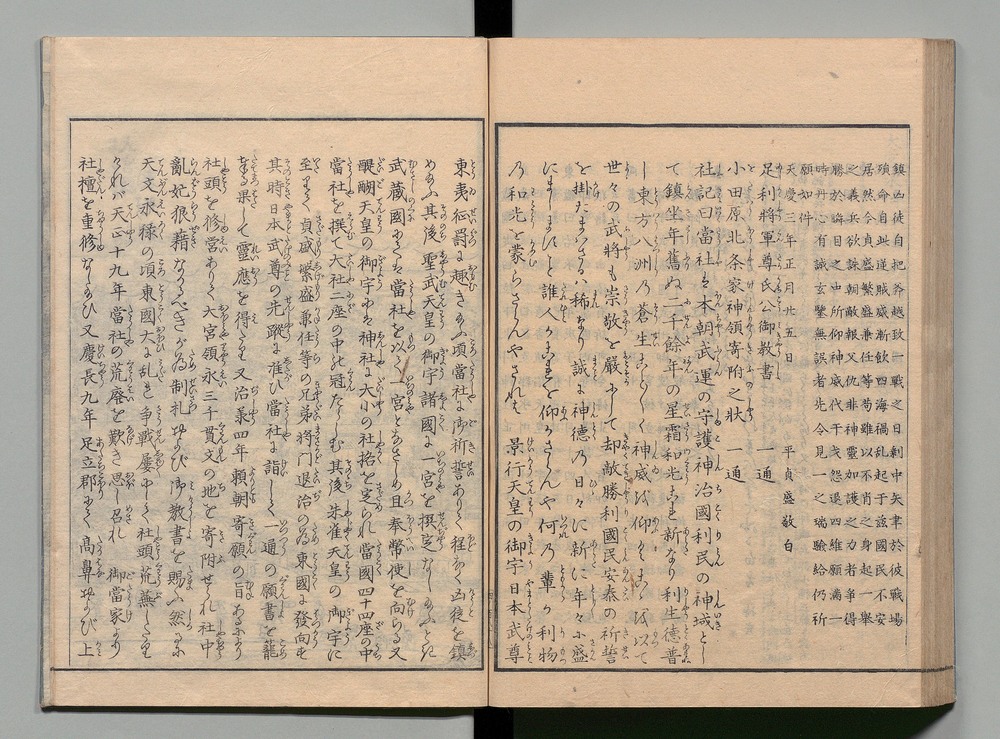 鎮凶徒自把斧越致一戰之日剰中矢聿於彼戰場
殞命自此逆賊威漸飲四海禍乱起于茲國民不安
居然今貞盛繁盛兼任等苟雖以不肖之身起一舉
之義兵欲誅朝敵報父仇非神靈加護之力者爭得
勝於瞬目之中所仰神威代干戈怨退四維願満一
時丹心有誠玄鑒無誤者先令見一之瑞驗給仍所
願如件
天慶三年正月廿五日　平貞盛敬白
足利將軍尊氏公御教書　一通
小田原北条家神領寄附之狀　一通
社記曰當社は本朝武運の守護神治國利民の神域とし
て鎮坐年舊ぬ二千餘年の星霜和光これ新なり利生德普
し東方八洲乃蒼生こと〲く神威を仰かさるなし以て
世々の武將も崇敬を嚴ふして却敵勝利國民安泰の祈誓
を掛たまさるは稀なり誠に神德乃日々に新に年々に盛
にましますこと誰人かこれを仰かさらんや何乃輩か利物
乃和光を蒙らさらんやされは　景行天皇の御宇日本武尊
東夷征罸に趣きたまふ項當社に御祈誓ありて程なく凶徒を鎮
めたまふ其後聖武天皇の御宇諸國に一宮を撰定なしたまふとき
武蔵國にては當社を以て一宮とあかめられ且奉幣使を向らる又
醍醐天皇の御宇には神社に大小の社格を定られ當國四十四座の中
當社を撰て大社二座の中乃冠たらしむ其後朱雀天皇の御宇に
至りて貞盛繁盛兼任等の兄弟將門退治の為東國に發向せ
其時日本武尊の先蹤に准ひ當社に詣して一通の願書を籠
奉る果して靈應を得たり又治羕四年賴朝寄願の旨あるにより
社頭を修営ありて大宮領永三千貫文の地を寄附せられ社中
亂妃狼藉なかるへきか為制札および御教書を賜ふ然るに
天文永禄の頃東國大に乱れ争戰屢にして社頭荒蕪したり
けれバ天正十九年當社の荒廃を歎き思し召れ　御當家より
社檀を重修なしたまひ又慶長九年足立郡にて高鼻および上